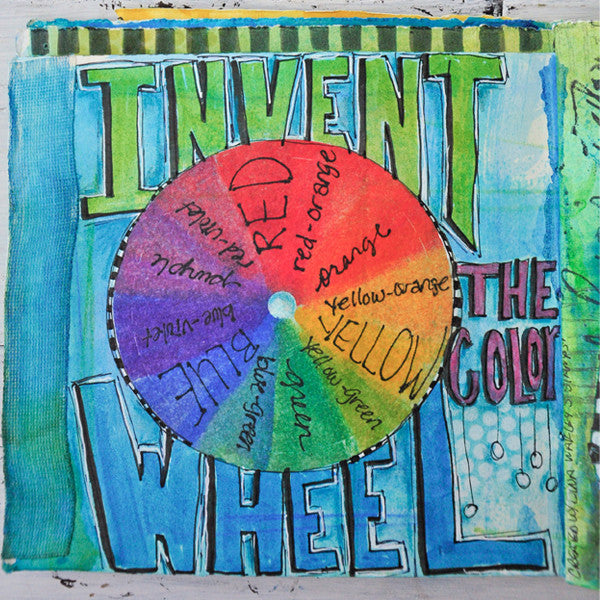 INVENT
THE
COLOR
WHEEL
RED
red-orange
orange
yellow-orange
YELLOW
yellow-green
green
blue-green
BLUE
blue-violet
purple
red-violet
CREATED BY